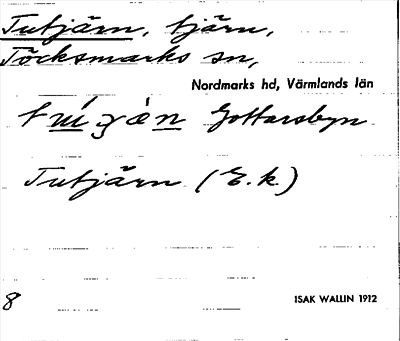 Tutjärn, tjärn,
Töcksmarks sn,
Nordmarks hd, Värmlands län
Gottarsbyn
Tutjärn (E.k.)
8
ISAK WALLIN 1912